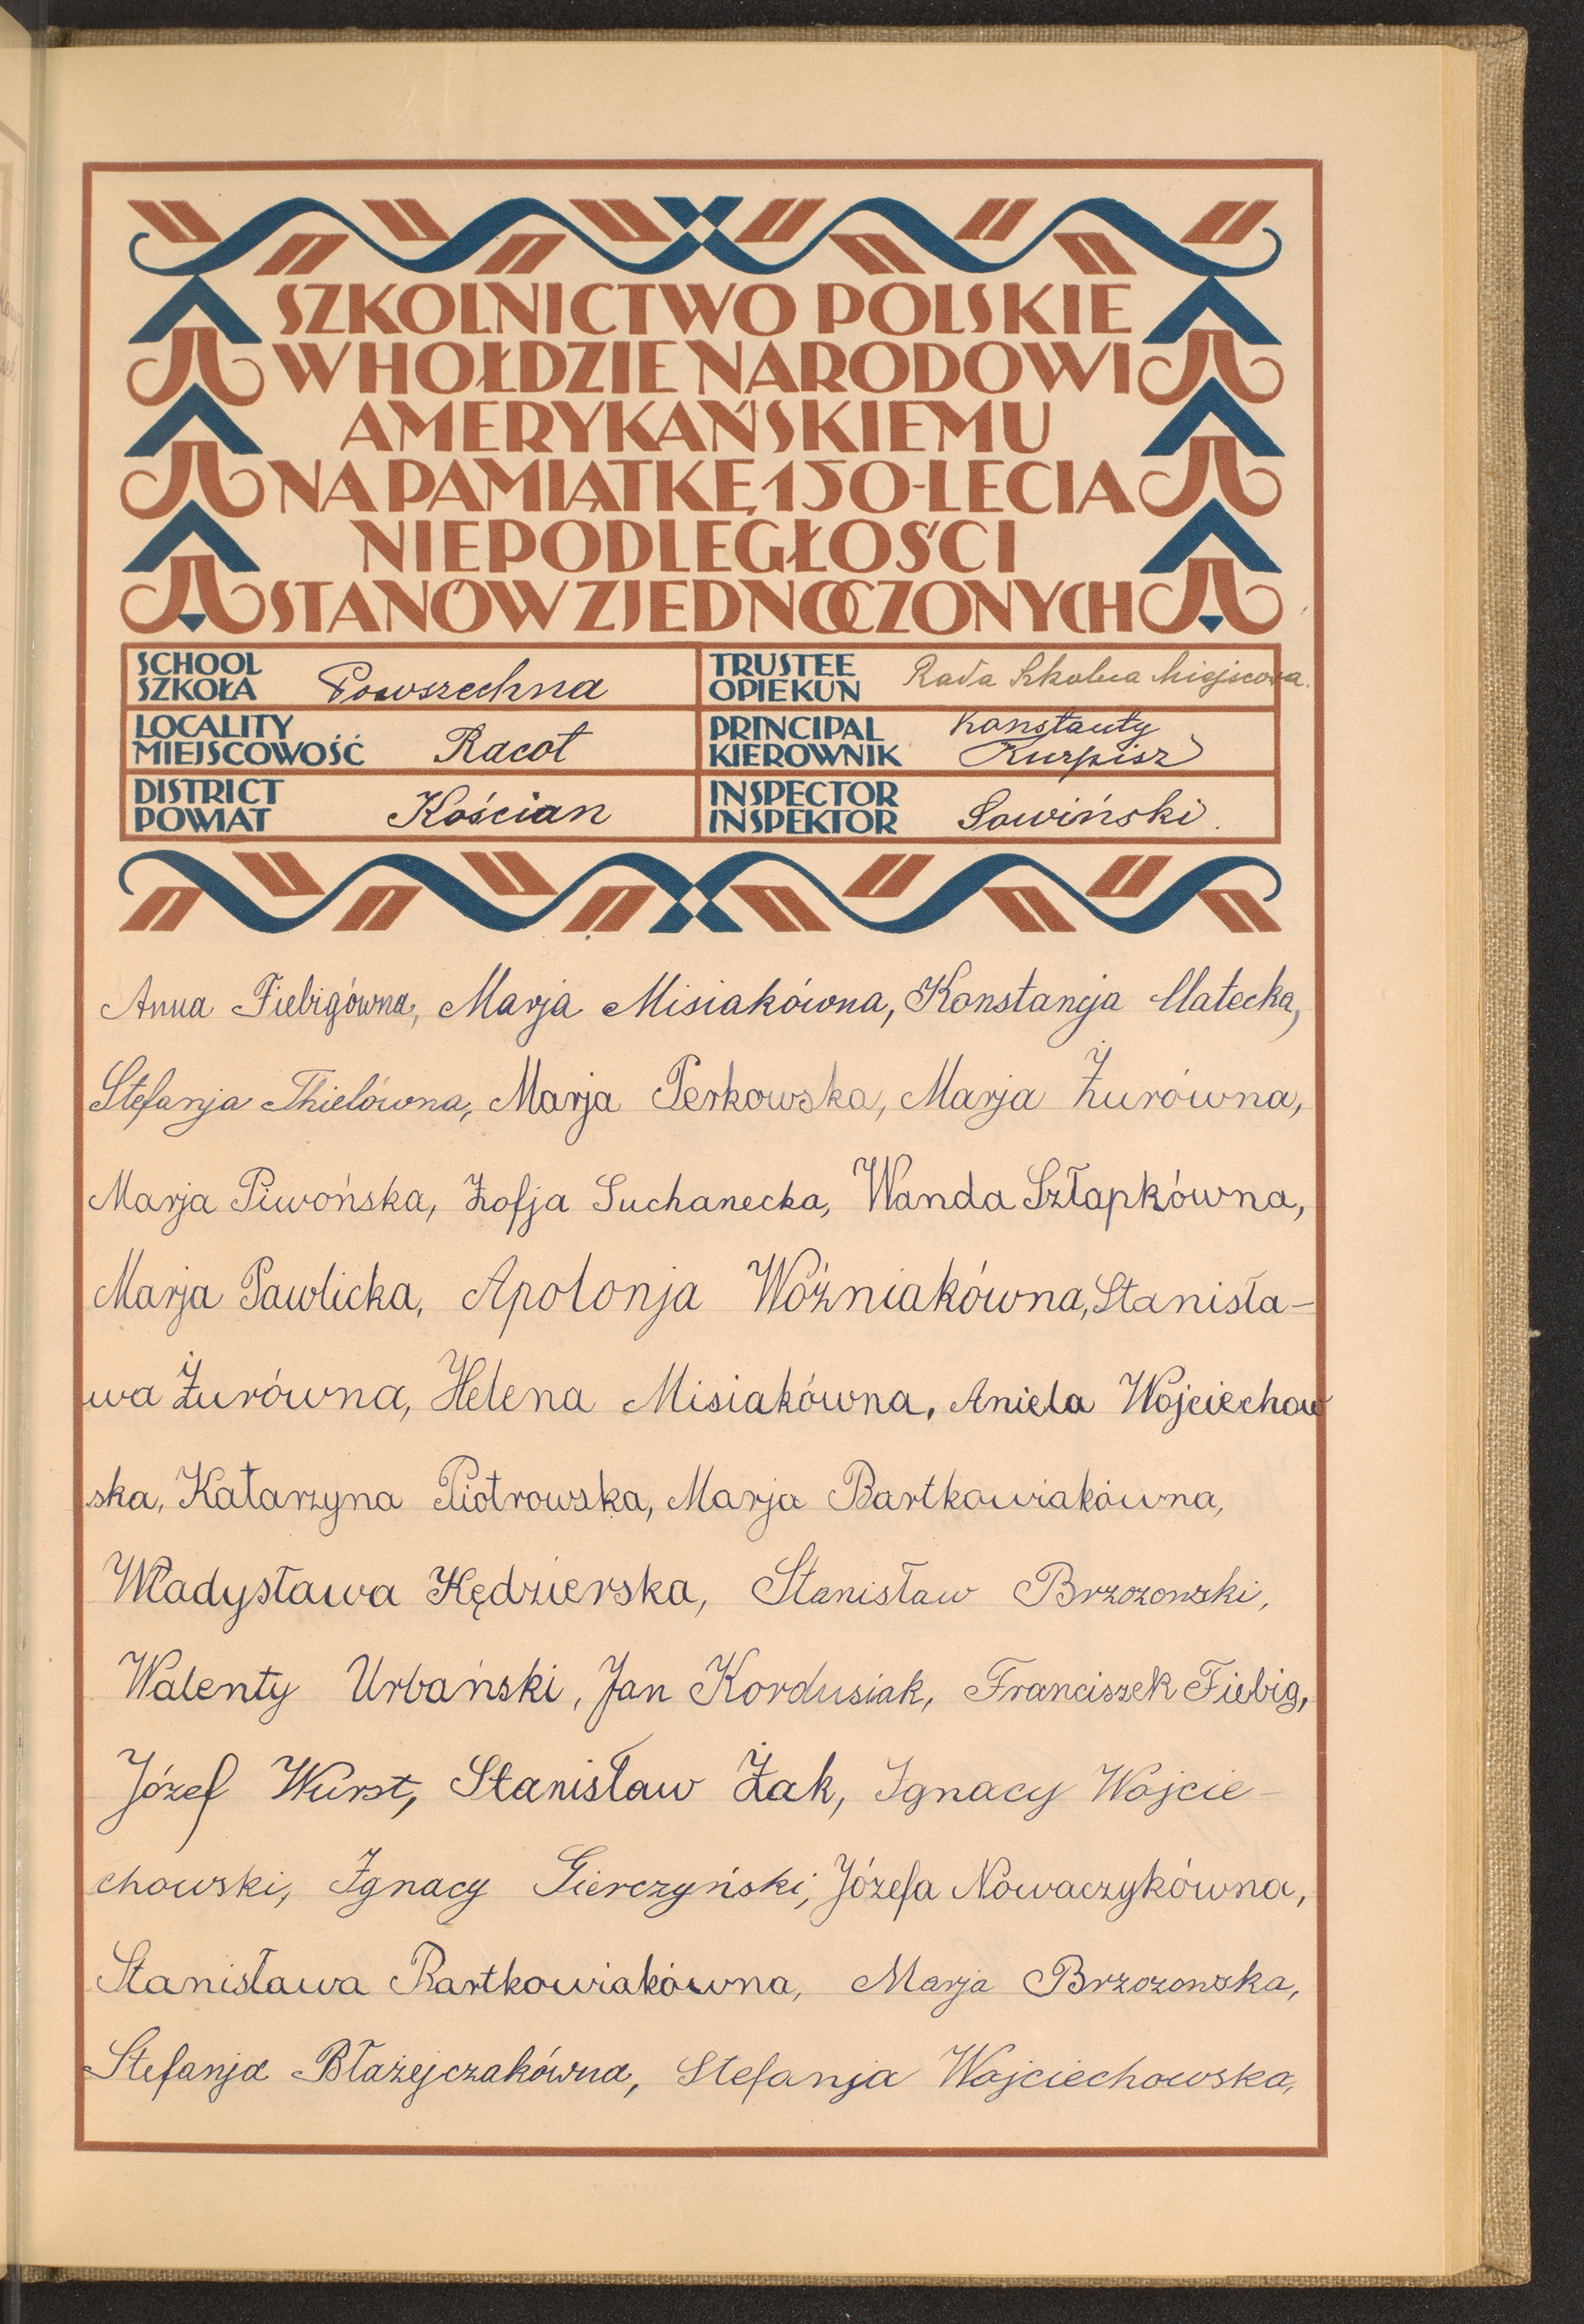 SZKOLNICTWO POLSKIE
W HOŁDZIE NARODOWI
AMERYKAŃSKIEMU
NA PAMIĄTKĘ 150-LECIA
NIEPODLEGŁOŚCI
STANÓW ZJEDNOCZONYCH
SCHOOL
SZKOŁA Powszechna
TRUSTEE
OPIEKUN Rada Szkolna Miejscowa.
LOCALITY
MIEJSCOWOŚĆ Racot
PRINCIPAL
KIEROWNIK Konstanty
Kurpisz
DISTRICT
POWIAT Kościan
INSPECTOR
INSPEKTOR Sowiński.
Anna Fiebigówna, Marja Misiakówna, Konstancja Małecka,
Stefanja Thielówna, Marja Perkowska, Marja Żurówna,
Marja Piwońska, Zofja Suchanecka, Wanda Szłapkówna,
Marja Pawlicka, Apolonja Wóźniakówna, Stanisła-
wa Żurówna, Helena Misiakówna, Aniela Wojciechow
ska, Katarzyna Piotrowska, Marja Bartkowiakówna,
Władysława Kędzierska, Stanisław Brzozowski,
Walenty Urbański, Jan Kordusiak, Franciszek Fiebig,
Józef Wurst, Stanisław Żak, Ignacy Wojcie-
chowski, Ignacy Gierczyński, Józefa Nowaczykówna,
Stanisława Bartkowiakówna, Marja Brzozowska,
Stefanja Błażejczakówna, Stefanja Wojciechowska,